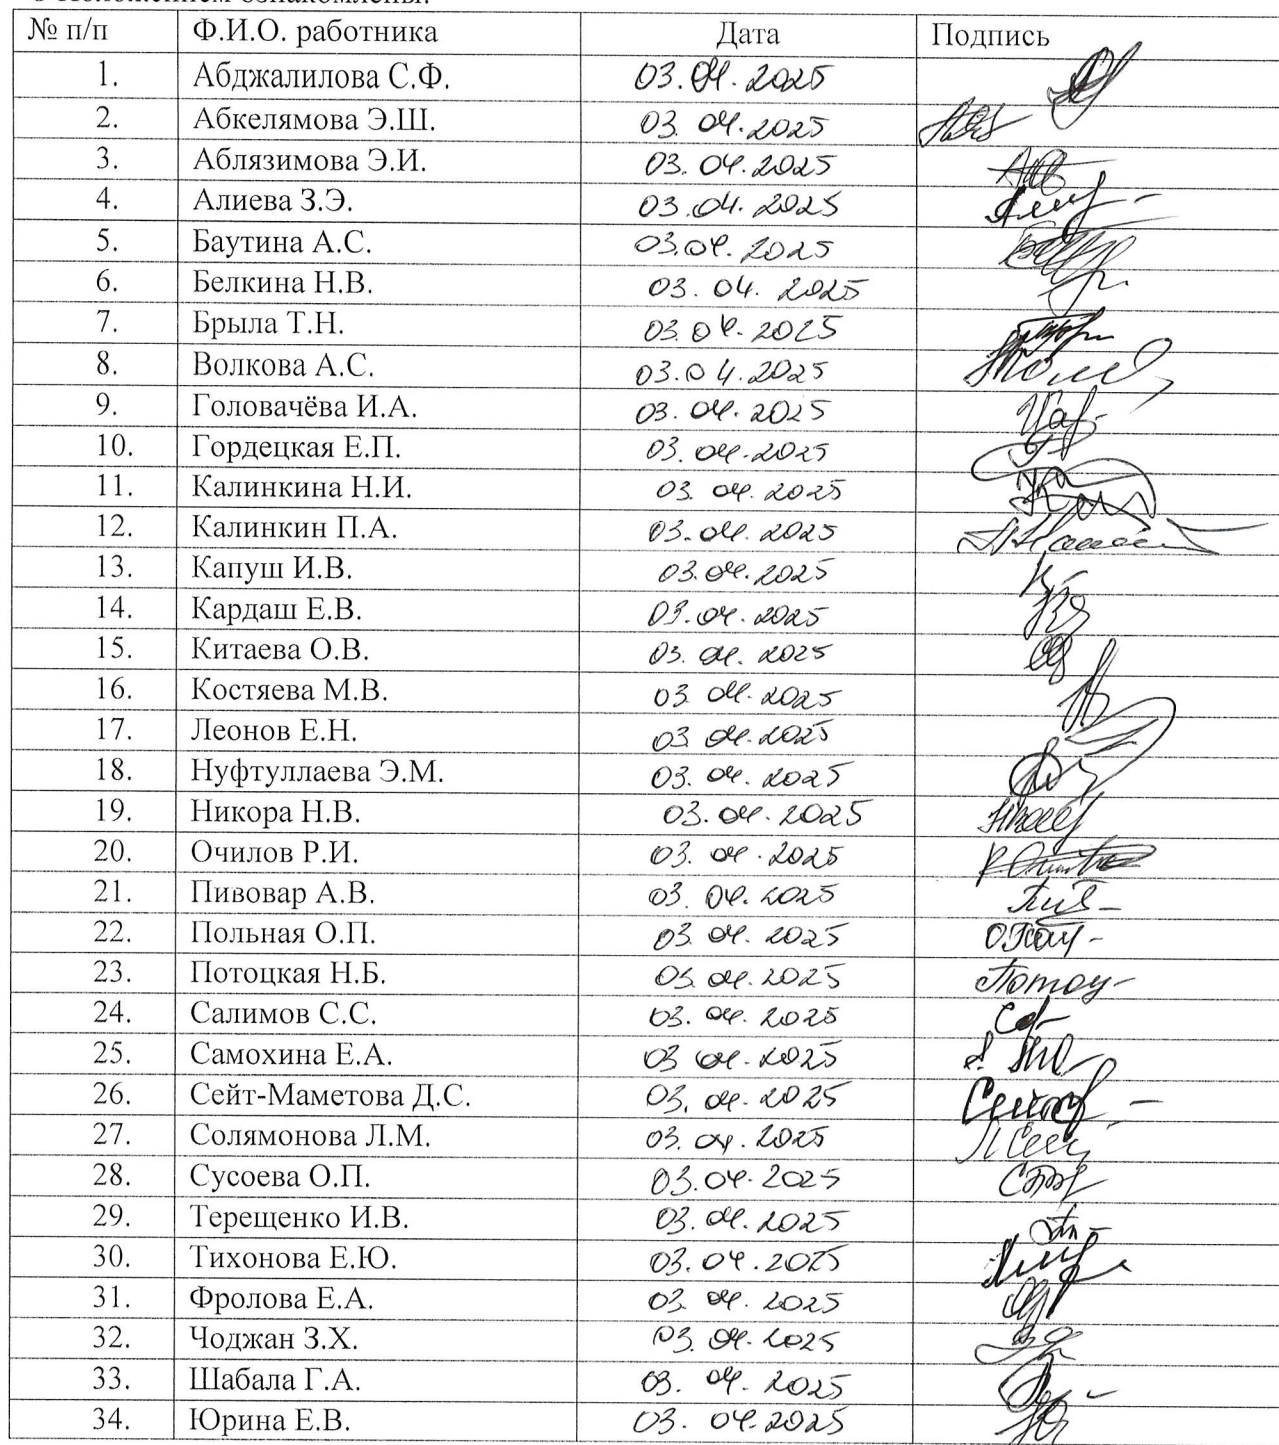 с Положением ознакомлены:
№ п/п Ф.И.О. работника Дата Подпись
1. Абджалилова С.Ф. 03.04.2025
2. Абкелямова Э.Ш. 03.04.2025
3. Аблязимова Э.И. 03.04.2025
4. Алиева З.Э. 03.04.2025
5. Баутина А.С. 03.04.2025
6. Белкина Н.В. 03.04.2025
7. Брыла Т.Н. 03.04.2025
8. Волкова А.С. 03.04.2025
9. Головачёва И.А. 03.04.2025
10. Гордецкая Е.П. 03.04.2025
11. Калинкина Н.И. 03.04.2025
12. Калинкин П.А. 03.04.2025
13. Капуш И.В. 03.04.2025
14. Кардаш Е.В. 03.04.2025
15. Китаева О.В. 03.04.2025
16. Костяева М.В. 03.04.2025
17. Леонов Е.Н. 03.04.2025
18. Нуфтуллаева Э.М. 03.04.2025
19. Никора Н.В. 03.04.2025
20. Очилов Р.И. 03.04.2025
21. Пивовар А.В. 03.04.2025
22. Польная О.П. 03.04.2025
23. Потоцкая Н.Б. 03.04.2025
24. Салимов С.С. 03.04.2025
25. Самохина Е.А. 03 04.2025
26. Сейт-Маметова Д.С. 03.04.2025
27. Солямонова Л.М. 03.04.2025
28. Сусоева О.П. 03.04.2025
29. Терещенко И.В. 03.04.2025
30. Тихонова Е.Ю. 03.04.2025
31. Фролова Е.А. 03.04.2025
32. Чоджан З.Х. 03.04.2025
33. Шабала Г.А. 03.04.2025
34. Юрина Е.В. 03.04.2025